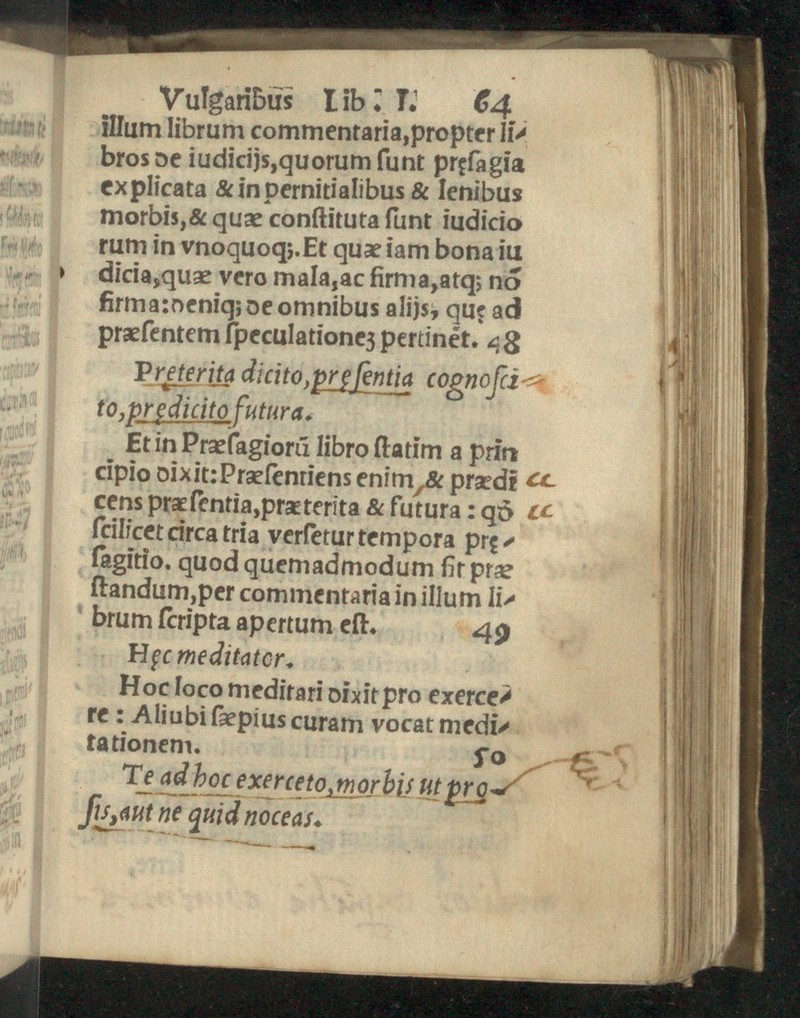 Vulgaribus Lib: I. 64
illum librum commentaria,propter li⸗
bros de iudicijs,quorum ſunt pręſagia
explicata & in pernitialibus & lenibus
morbis,& quæ conſtituta ſunt iudicio
rum in vnoquoq;.Et quæ iam bona iu
dicia,quæ vero mala,ac firma,atq; nõ
firma:deniq; de omnibus alijs, quę ad
præſentem ſpeculationeʒ pertinẽt. 48
Pręterita dicito,pręſentia cognoſci⸗
to,prędicito futura.
Et in Præſagiorũ libro ſtatim a prin
cipio dixit:Præſentiens enim,& prædi “
cens præſentia,præterita & futura : qõ “
ſcilicet circa tria verſetur tempora prę⸗
ſagitio. quod quemadmodum ſit præ
ſtandum,per commentaria in illum li⸗
brum ſcripta apertum eſt. 49
Hęc meditator.
Hoc loco meditari dixit pro exerce⸗
re : Aliubi ſæpius curam vocat medi⸗
tationem. 50
Te ad hoc exerceto,morbis ut pro⸗
ſis,aut ne quid noceas.